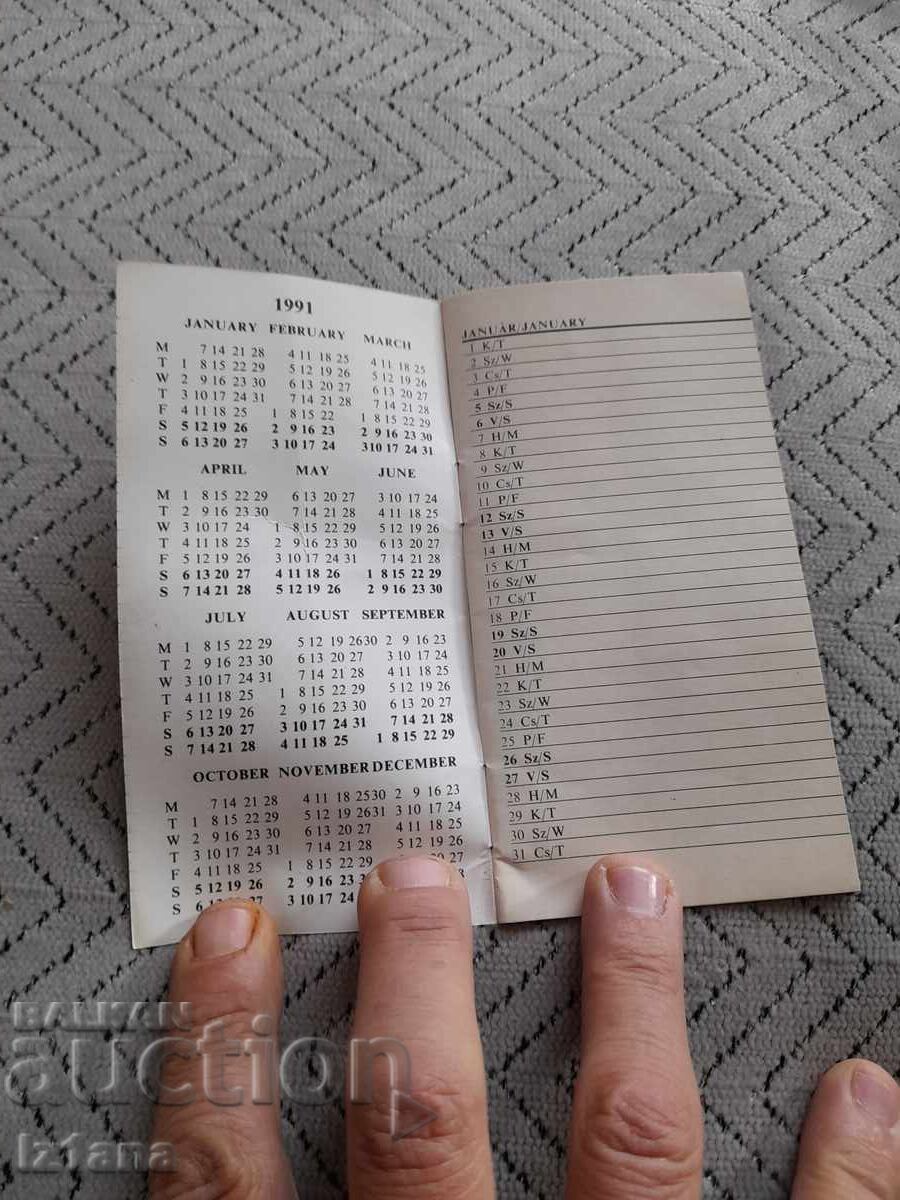 1991
JANUARY FEBRUARY MARCH
M 7 14 21 28 4 11 18 25 4 11 18 25
T 1 8 15 22 29 5 12 19 26 5 12 19 26
W 2 9 16 23 30 6 13 20 27 6 13 20 27
T 3 10 17 24 31 7 14 21 28 7 14 21 28
F 4 11 18 25 1 8 15 22 1 8 15 22 29
S 5 12 19 26 2 9 16 23 2 9 16 23 30
S 6 13 20 27 3 10 17 24 3 10 17 24 31
APRIL MAY JUNE
M 1 8 15 22 29 6 13 20 27 3 10 17 24
T 2 9 16 23 30 7 14 21 28 4 11 18 25
W 3 10 17 24 1 8 15 22 29 5 12 19 26
T 4 11 18 25 2 9 16 23 30 6 13 20 27
F 5 12 19 26 3 10 17 24 31 7 14 21 28
S 6 13 20 27 4 11 18 26 1 8 15 22 29
S 7 14 21 28 5 12 19 26 2 9 16 23 30
JULY AUGUST SEPTEMBER
M 1 8 15 22 29 5 12 19 26 30 2 9 16 23
T 2 9 16 23 30 6 13 20 27 3 10 17 24
W 3 10 17 24 31 7 14 21 28 4 11 18 25
T 4 11 18 25 1 8 15 22 29 5 12 19 26
F 5 12 19 26 2 9 16 23 30 6 13 20 27
S 6 13 20 27 3 10 17 24 31 7 14 21 28
S 7 14 21 28 4 11 18 25 1 8 15 22 29
OCTOBER NOVEMBER DECEMBER
M 7 14 21 28 4 11 18 25 30 2 9 16 23
T 1 8 15 22 29 5 12 19 26 31 3 10 17 24
W 2 9 16 23 30 6 13 20 27 4 11 18 25
T 3 10 17 24 31 7 14 21 28 5 12 19 26
F 4 11 18 25 1 8 15 22 29 20 27
S 5 12 19 26 2 9 16 23
S 27 3 10 17 24
JANUÁR/JANUARY
1 K/T
2 Sz/W
3 Cs/T
4 P/F
5 Sz/S
6 V/S
7 H/M
8 K/T
9 Sz/W
10 Cs/T
11 P/F
12 Sz/S
13 V/S
14 H/M
15 K/T
16 Sz/W
17 Cs/T
18 P/F
19 Sz/S
20 V/S
21 H/M
22 K/T
23 Sz/W
24 Cs/T
25 P/F
26 Sz/S
27 V/S
28 H/M
29 K/T
30 Sz/W
31 Cs/T
BALKAN
auction
Iz1ana